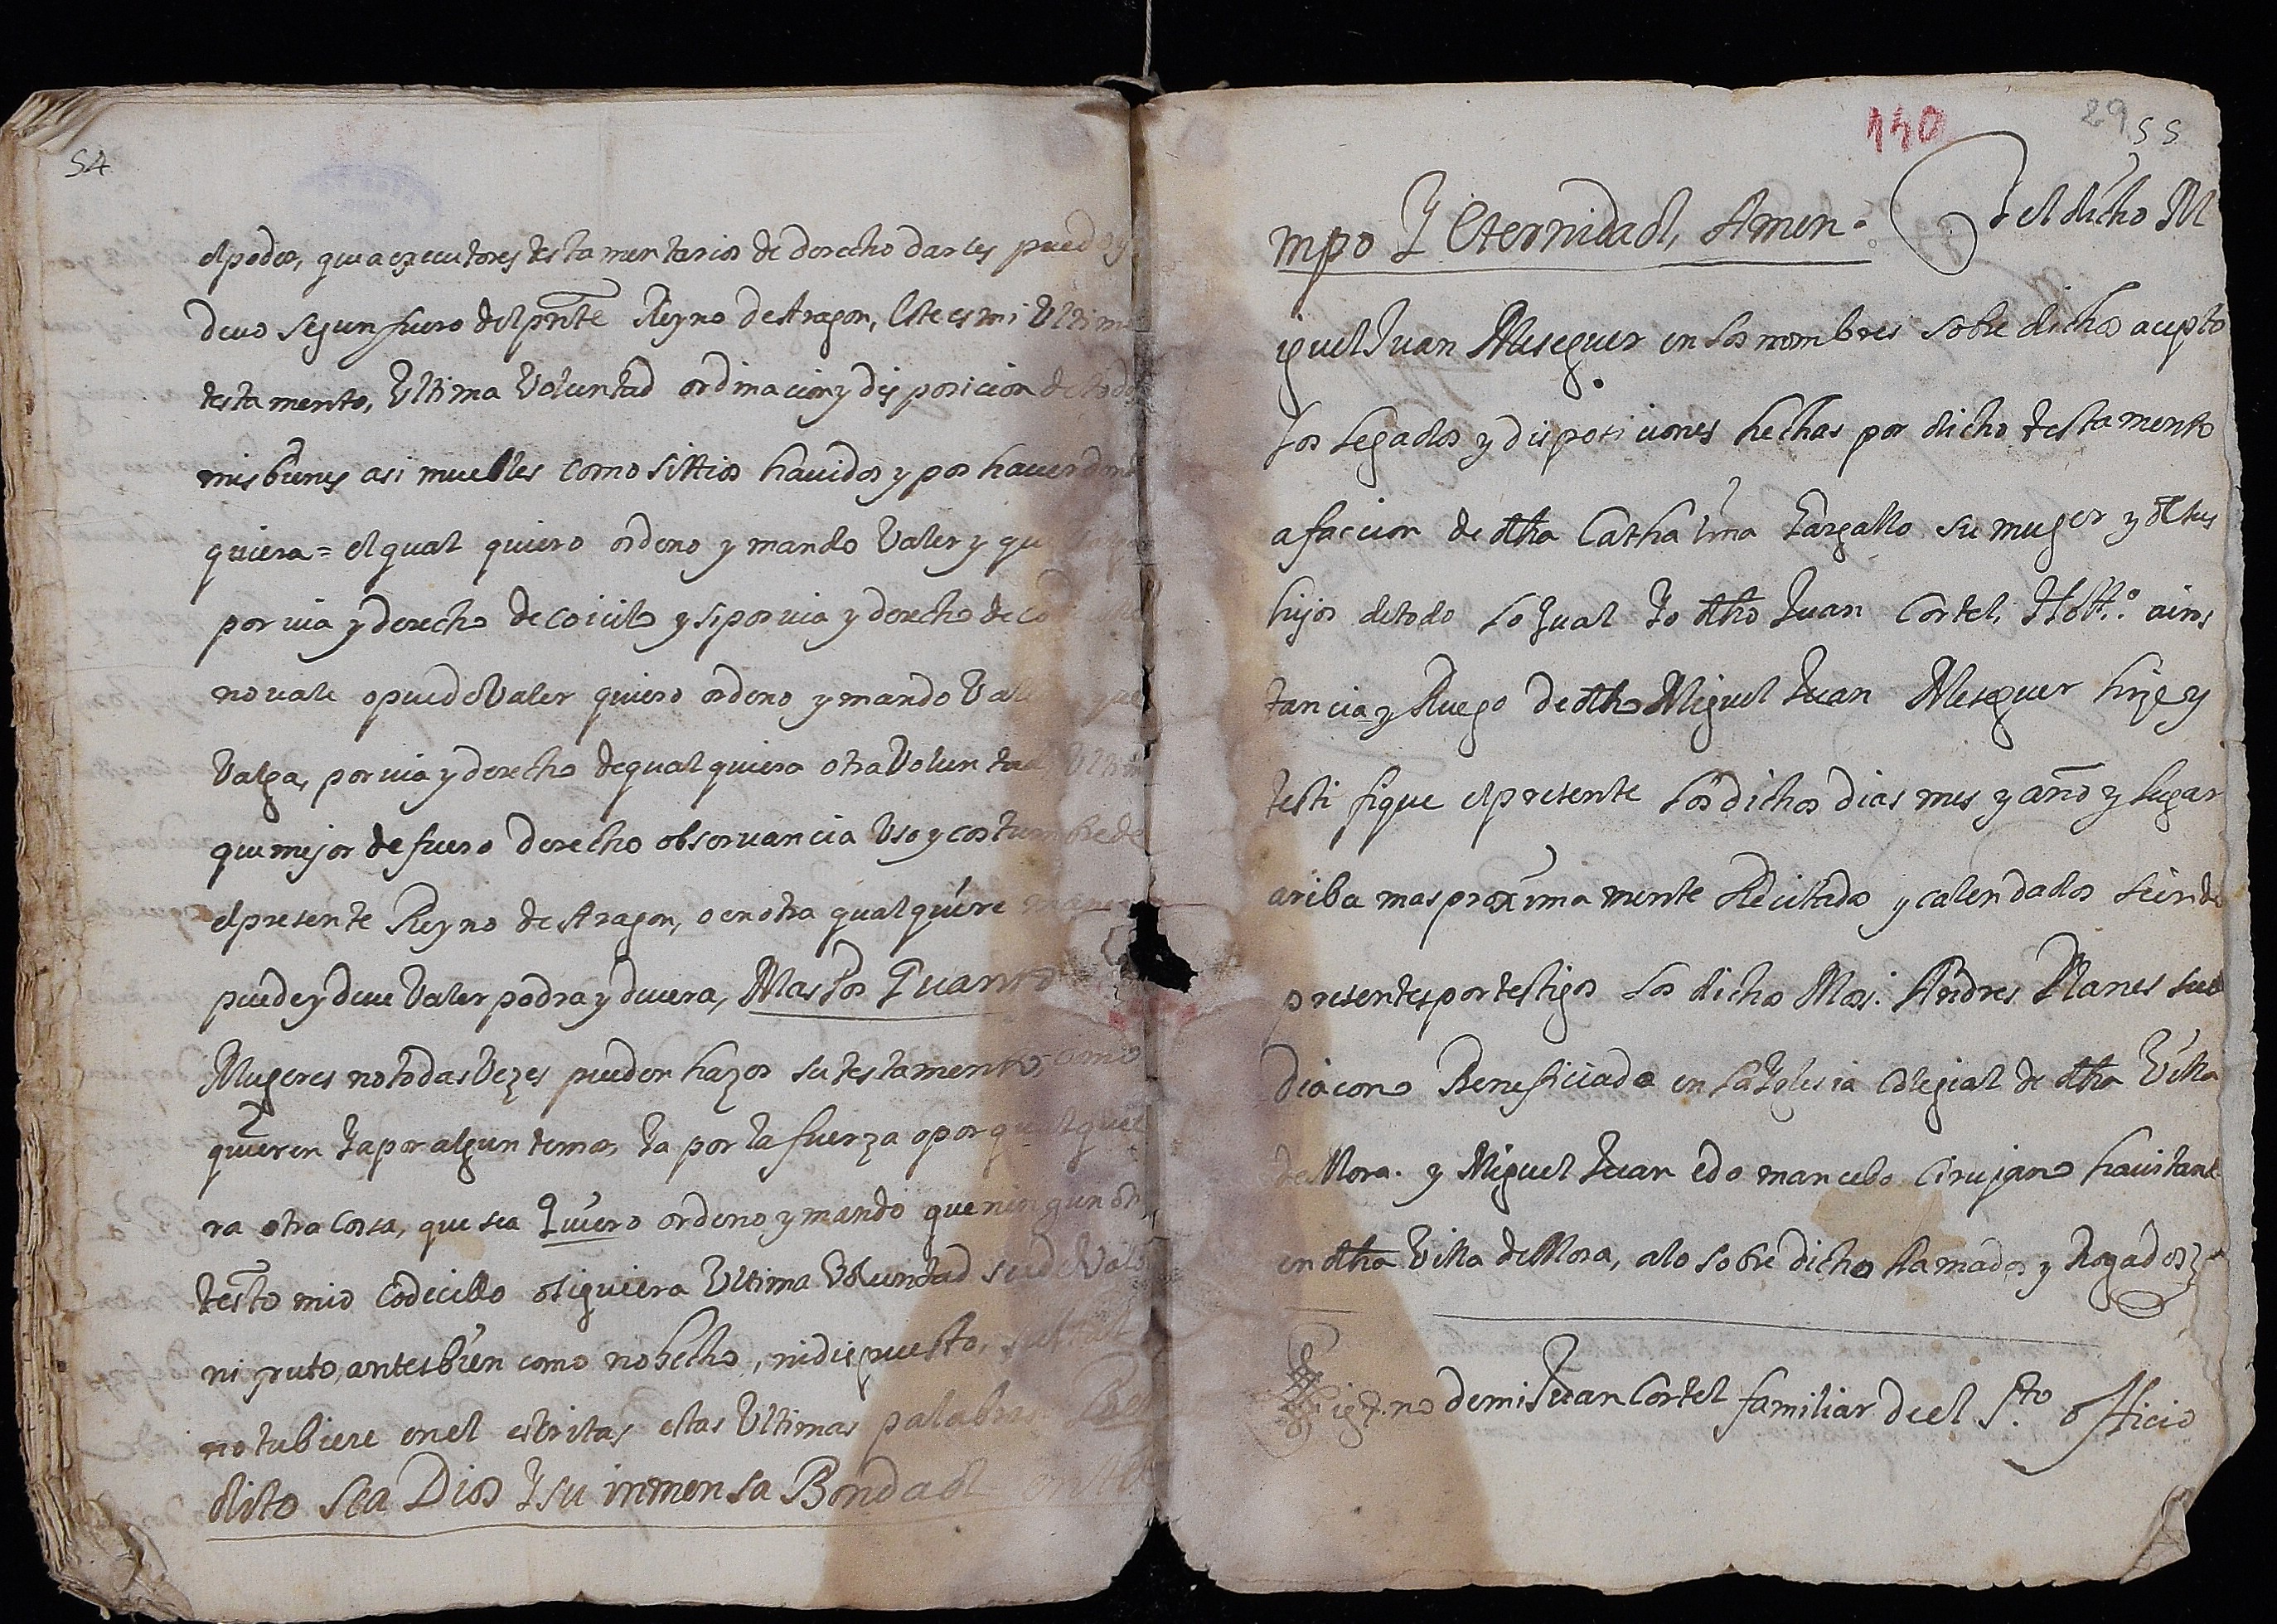 54
el poder, que a executores testamentarios de derecho darles puedo y
devo segun fuero del pnte Reyno de Aragon, Este es mi Ultimo
testamento, Ultima Voluntad ordinacion y disposicion de todos
mis bienes asi muebles como sittios havidos y por haver donde
quiera = el qual quiero ordeno y mando Valer y que
por via y derecho de coicilo y si por via y derecho de
no vale o puede Valer quiero ordeno y mando que
Valga, por via y derecho de qual quiera otra Voluntad Ultima
que mejor de fuero derecho observancia Uso y costumbre de
el presente Reyno de Aragon, o en otra qual quiere manera
puede y deve Valer podra y devera, Mas Por Quanto
Mugeres no todas Vezes pueden hazer su testamento, como
quieren ya por algun temor, ya por la fuerza o por qualquie
ra otra Cosa, que sea Quiero ordeno y mando que ningun otro
testto mio Codecillo o siquiera Ultima Voluntad sea de Valor
ni fruto, antes bien como no hecho, ni dispuesto,
no tubiere en el escritas estas Ultimas palabras Ben
dito sea Dios Y su inmensa Bondad en tie
140
29
55
mpo Y Eternidad, Amen. Y el dicho M
iguel Juan Meseguer en los nombres sobre dichos acepto
los Legados y disposiciones hechas por dicho testamento
a faccion de dtha Cathalina Gargallo su muger y de sus
hijos de todo lo qual Yo dtho Juan Cortel, Nott.º a ins
tancia y Ruego de dtho Miguel Juan Meseguer hize y
testifique el presente los dichos dias mes y año y lugar
ariba mas proximamente Recitados y calendados siendo
presentes por testigos los dicho Mos. Andres Planes sub
diacono Beneficiado en la Iglesia Colegial de dtha Villa
de Mora. y Miguel Juan Edo mancebo Cirujano havitante
en dtha Villa de Mora, a lo sobre dicho llamados y Rogados
Sig.no de mi Juan Cortel familiar de el S.to officio